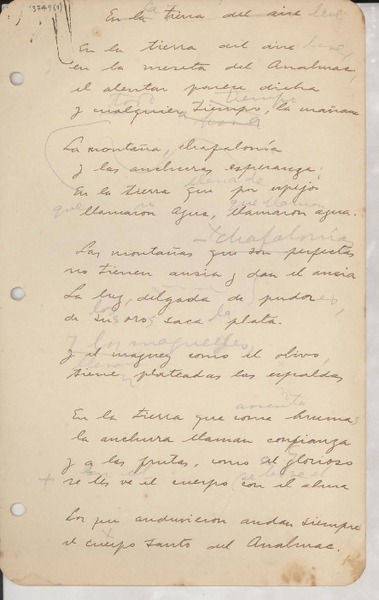 32491(1)
En la tierra del aire leve
En la tierra del aire leve,
en la meseta del Anahuac,
el alentar parece dicha
todo tiempo
y cualquiera tiempo, la mañana
La montaña, chafalonía
y las anchuras esperanza;
llena de
En la tierra que por espejo
que llaman
llamaron Agua, llamaron agua.
chafalonía
Las montañas que son perfectas
no tienen ansia y dan el ansia
La luz, delgada de pudores,
de sus oros saca la plata.
Y los magueyes,
y el maguey como el olivo,
tiene plateadas las espaldas
avienta
En la tierra que come brumas
la anchura llaman confianza
y a las frutas, como al glorioso
se les ve el cuerpo con el alma
Los que anduvieron andan siempre
el cuerpo santo del Anahuac.